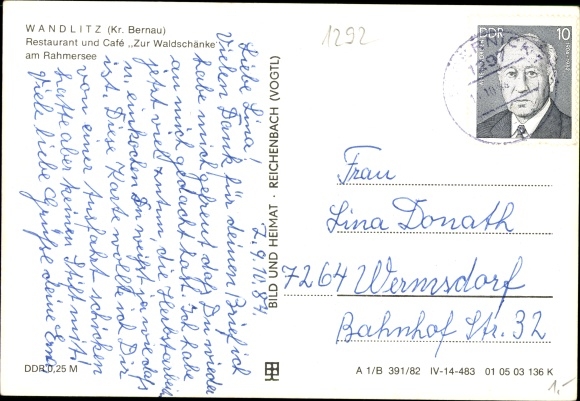 WANDLITZ (Kr. Bernau)
Restaurant und Café „Zur Waldschänke“
am Rahmersee
1292
DDR 10
129
7. 9. 10. 84
Liebe Lina!
Vielen Dank für deinen Brief ich
habe mich gefreut das Du wieder
an mich gedacht hast. Ich habe
jetzt viel zu tun, die Herbstarbeit
einkochen Du weißt ja wie das
ist. Diese Karte wollte ich Dir
von einer Ausfahrt schicken
hatte aber keinen Stift mit!
Viele liebe Grüße deine
BILD UND HEIMAT · REICHENBACH (VOGTL)
Frau
Lina Donath
7264 Wermsdorf
Bahnhof Str. 32
DDR 0,25 M
A 1/B 391/82 IV-14-483 01 05 03 136 K
1,-